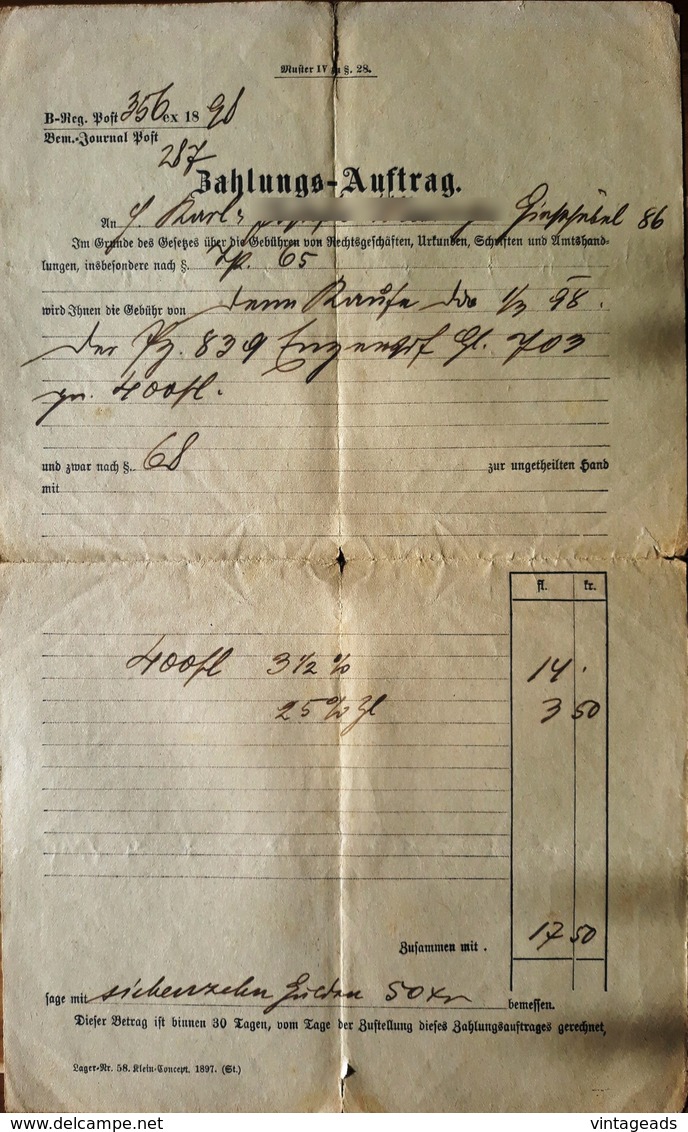 Muster IV zu §. 28.
B-Reg. Post 356 ex 18 98
Bem.-Journal Post
287
Zahlungs-Auftrag.
An H. Karl 86
Im Grunde des Gesetzes über die Gebühren von Rechtsgeschäften, Urkunden, Schriften und Amtshand-
lungen, insbesondere nach §. Tp. 65
wird Ihnen die Gebühr von dem Kaufe 98.
der Pz. 839 Enzersdf 703
pr. 400 fl.
und zwar nach §. 68 zur ungetheilten Hand
mit
fl. kr.
400 fl 3 1/2 % 14 .
25 % Zl 3 50
Zusammen mit . 17 50
sage mit siebenzehn Gulden 50 xr bemessen.
Dieser Betrag ist binnen 30 Tagen, vom Tage der Zustellung dieses Zahlungsauftrages gerechnet,
Lager-Nr. 58. Klein-Concept. 1897. (St.)
vintageads